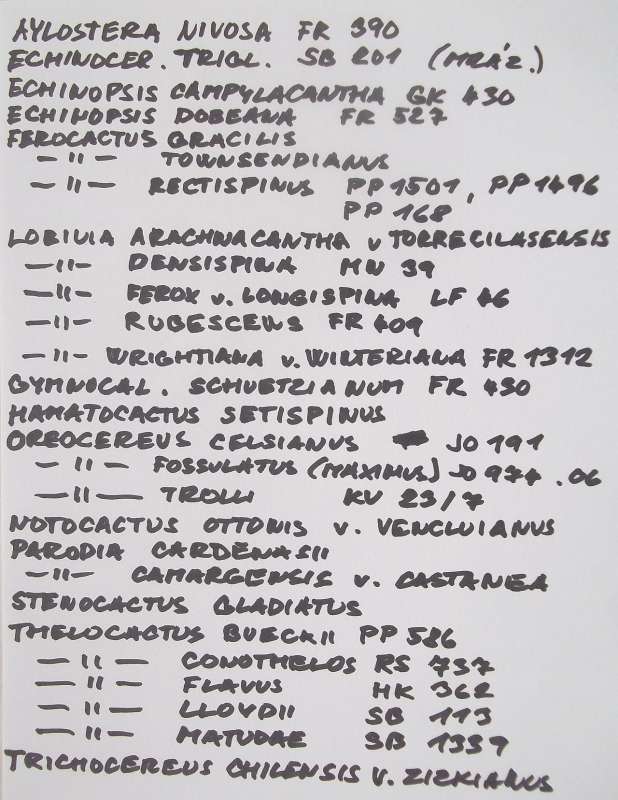 AYLOSTERA NIVOSA FR 390
ECHINOCER. TRIGL. SB 201 (MRÁZ.)
ECHINOPSIS CAMPYLACANTHA GK 430
ECHINOPSIS DOBEANA FR 527
FEROCACTUS GRACILIS
—"— TOWNSENDIANUS
—"— RECTISPINUS PP 1501, PP 1496
PP 168
LOBIVIA ARACHNACANTHA v TORRECILASENSIS
—"— DENSISPINA MN 39
—"— FEROX v. LONGISPINA LF 46
—"— RUBESCENS FR 409
—"— WRIGHTIANA v. WINTERIANA FR 1312
GYMNOCAL. SCHUETZIANUM FR 430
HAMATOCACTUS SETISPINUS
OREOCEREUS CELSIANUS JO 191
—"— FOSSULATUS (MAXIMUS) JO 974.06
—"— TROLLI KV 23/7
NOTOCACTUS OTTONIS v. VENCLUIANUS
PARODIA CARDĒNASII
—"— CAMARGENSIS v. CASTANEA
STENOCACTUS GLADIATUS
THELOCACTUS BUECKII PP 586
—"— CONOTHELOS RS 737
—"— FLAVUS HK 362
—"— LLOYDII SB 113
—"— MATUDAE SB 1339
TRICHOCEREUS CHILENSIS V. ZIZKIANUS